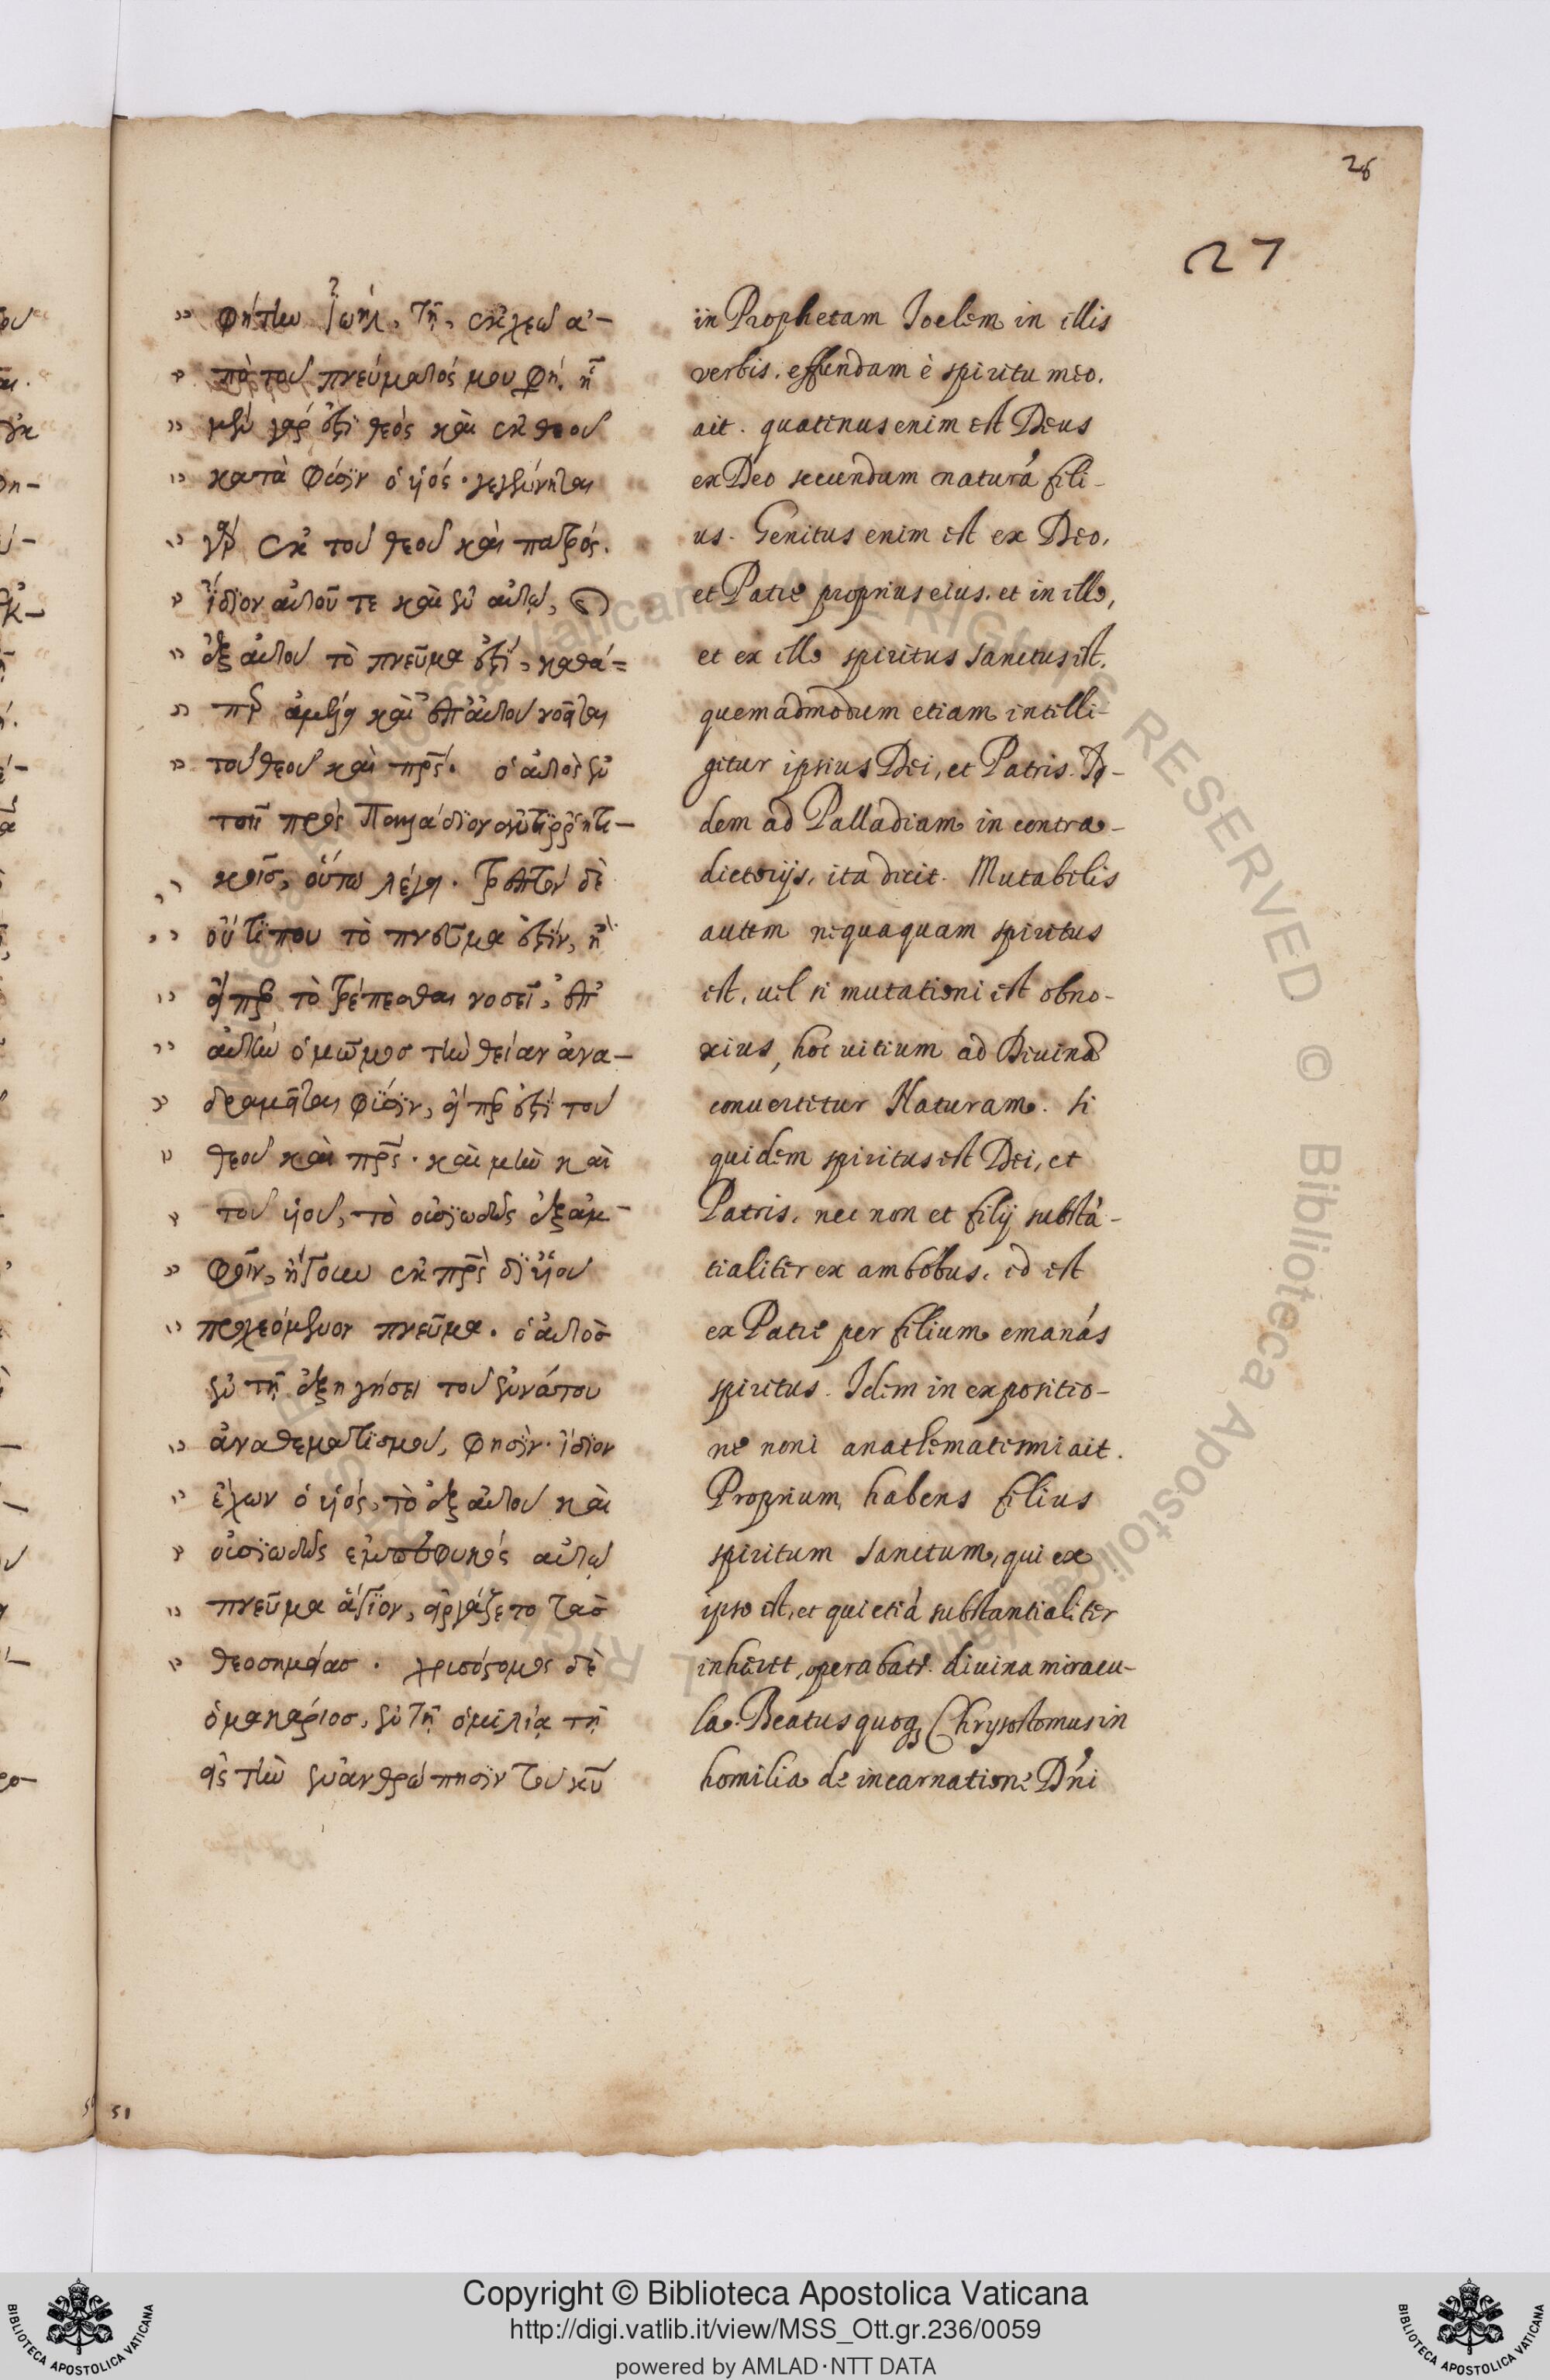 26
27
φήτην Ἰωήλ, τῆ, ἐκχεῶ ἀ-
πὸ τοῦ πνεύματός μου φη. ᾗ
μὲν γάρ ἐστι θεός καὶ ἐκ θεοῦ
κατὰ φύσιν ὁ υἱός· γεγέννηται
γὰρ ἐκ τοῦ θεοῦ καὶ πατρός.
ἴδιον αὐτοῦ τε καὶ ἐν αὐτῷ, καὶ
ἐξ αὐτοῦ τὸ πνεῦμα ἐστί, καθά=
περ ἀμέλει καὶ ἐπ' αὐτοῦ νοεῖται
τοῦ θεοῦ καὶ πρς. ὁ αὐτὸς ἐν
τοῖς πρὸς Παλλάδιον ἀντιρρητι-
κοῖς, οὕτω λέγει. τρεπτὸν δὲ
οὔ τί που τὸ πνεῦμα ἐστίν, ἢ
εἴπερ τὸ τρέπεσθαι νοσεῖ, ἐπ'
αὐτὴν ὁ μῶμος τὴν θείαν ἀνα-
δραμεῖται φύσιν, εἴπερ ἐστὶ τοῦ
θεοῦ καὶ πρς· καὶ μὴν καὶ
τοῦ υἱοῦ, τὸ οὐσιωδῶς ἐξ ἀμ-
φοῖν, ἤγουν ἐκ πρς δι' υἱοῦ
προχεόμενον πνεῦμα. ὁ αὐτὸς
ἐν τῇ ἐξηγήσει τοῦ ἐννάτου
ἀναθεματισμοῦ, φησὶν· ἴδιον
ἔχων ὁ υἱός, τὸ ἐξ αὐτοῦ καὶ
οὐσιωδῶς ἐμπεφυκός αὐτῷ
πνεῦμα ἅγιον, εἰργάζετο τὰς
θεοσημείας. χρυσόστομος δὲ
ὁ μακάριος, ἐν τῇ ὁμιλίᾳ τῇ
εἰς τὴν ἐνανθρώπησιν τοῦ κυ
in Prophetam Joelem in illis
verbis. effundam è spiritu meo.
ait. quatinus enim est Deus
ex Deo secundum naturá fili-
us. Genitus enim est ex Deo,
et Patre proprius eius. et in illo,
et ex illo spiritus Sanctus est.
quemadmodum etiam intilli-
gitur ipsius Dei, et Patris. Ip-
dem ad Palladiam in contra-
dictorijs, ita dicit. Mutabilis
autem nequaquam spiritus
est, vel si mutationi est obno-
xius, hoc uitium ad Diuiná
conuertitur Naturam. si
quidem spiritus est Dei, et
Patris, nec non et filij substá-
tialiter ex ambobus, id est
ex Patre per filium emanás
spiritus. Idem in expositio-
ne noni anathematismi ait.
Proprium habens filius
spiritum Sanctum, qui ex
ipso est, et qui etiá substantialiter
inhæret, operabatr. diuina miracu-
la. Beatus quoq; Chrysostomus in
homilia de incarnatione Dńi
51
Copyright © Biblioteca Apostolica Vaticana
http://digi.vatlib.it/view/MSS_Ott.gr.236/0059
powered by AMLAD·NTT DATA